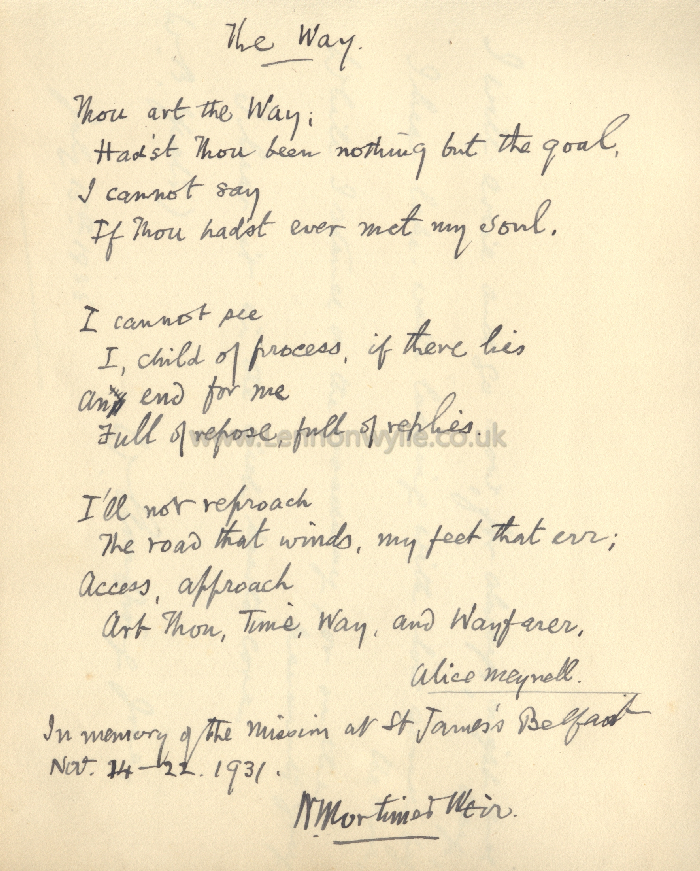 The Way.
Thou art the Way;
Had'st Thou been nothing but the goal,
I cannot say
If Thou hadst ever met my soul.
I cannot see
I, child of process, if there lies
An end for me
Full of repose, full of replies.
www.Lennonwylie.co.uk
I'll not reproach
The road that winds, my feet that err;
Access, approach
Art Thou, Time, Way, and Wayfarer.
Alice Meynell.
In memory of the Mission at St James's Belfast
Nov. 14-22. 1931.
Mortimer Weir.